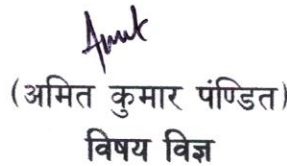 Amit
(अमित कुमार पंण्डित)
विषय विज्ञ